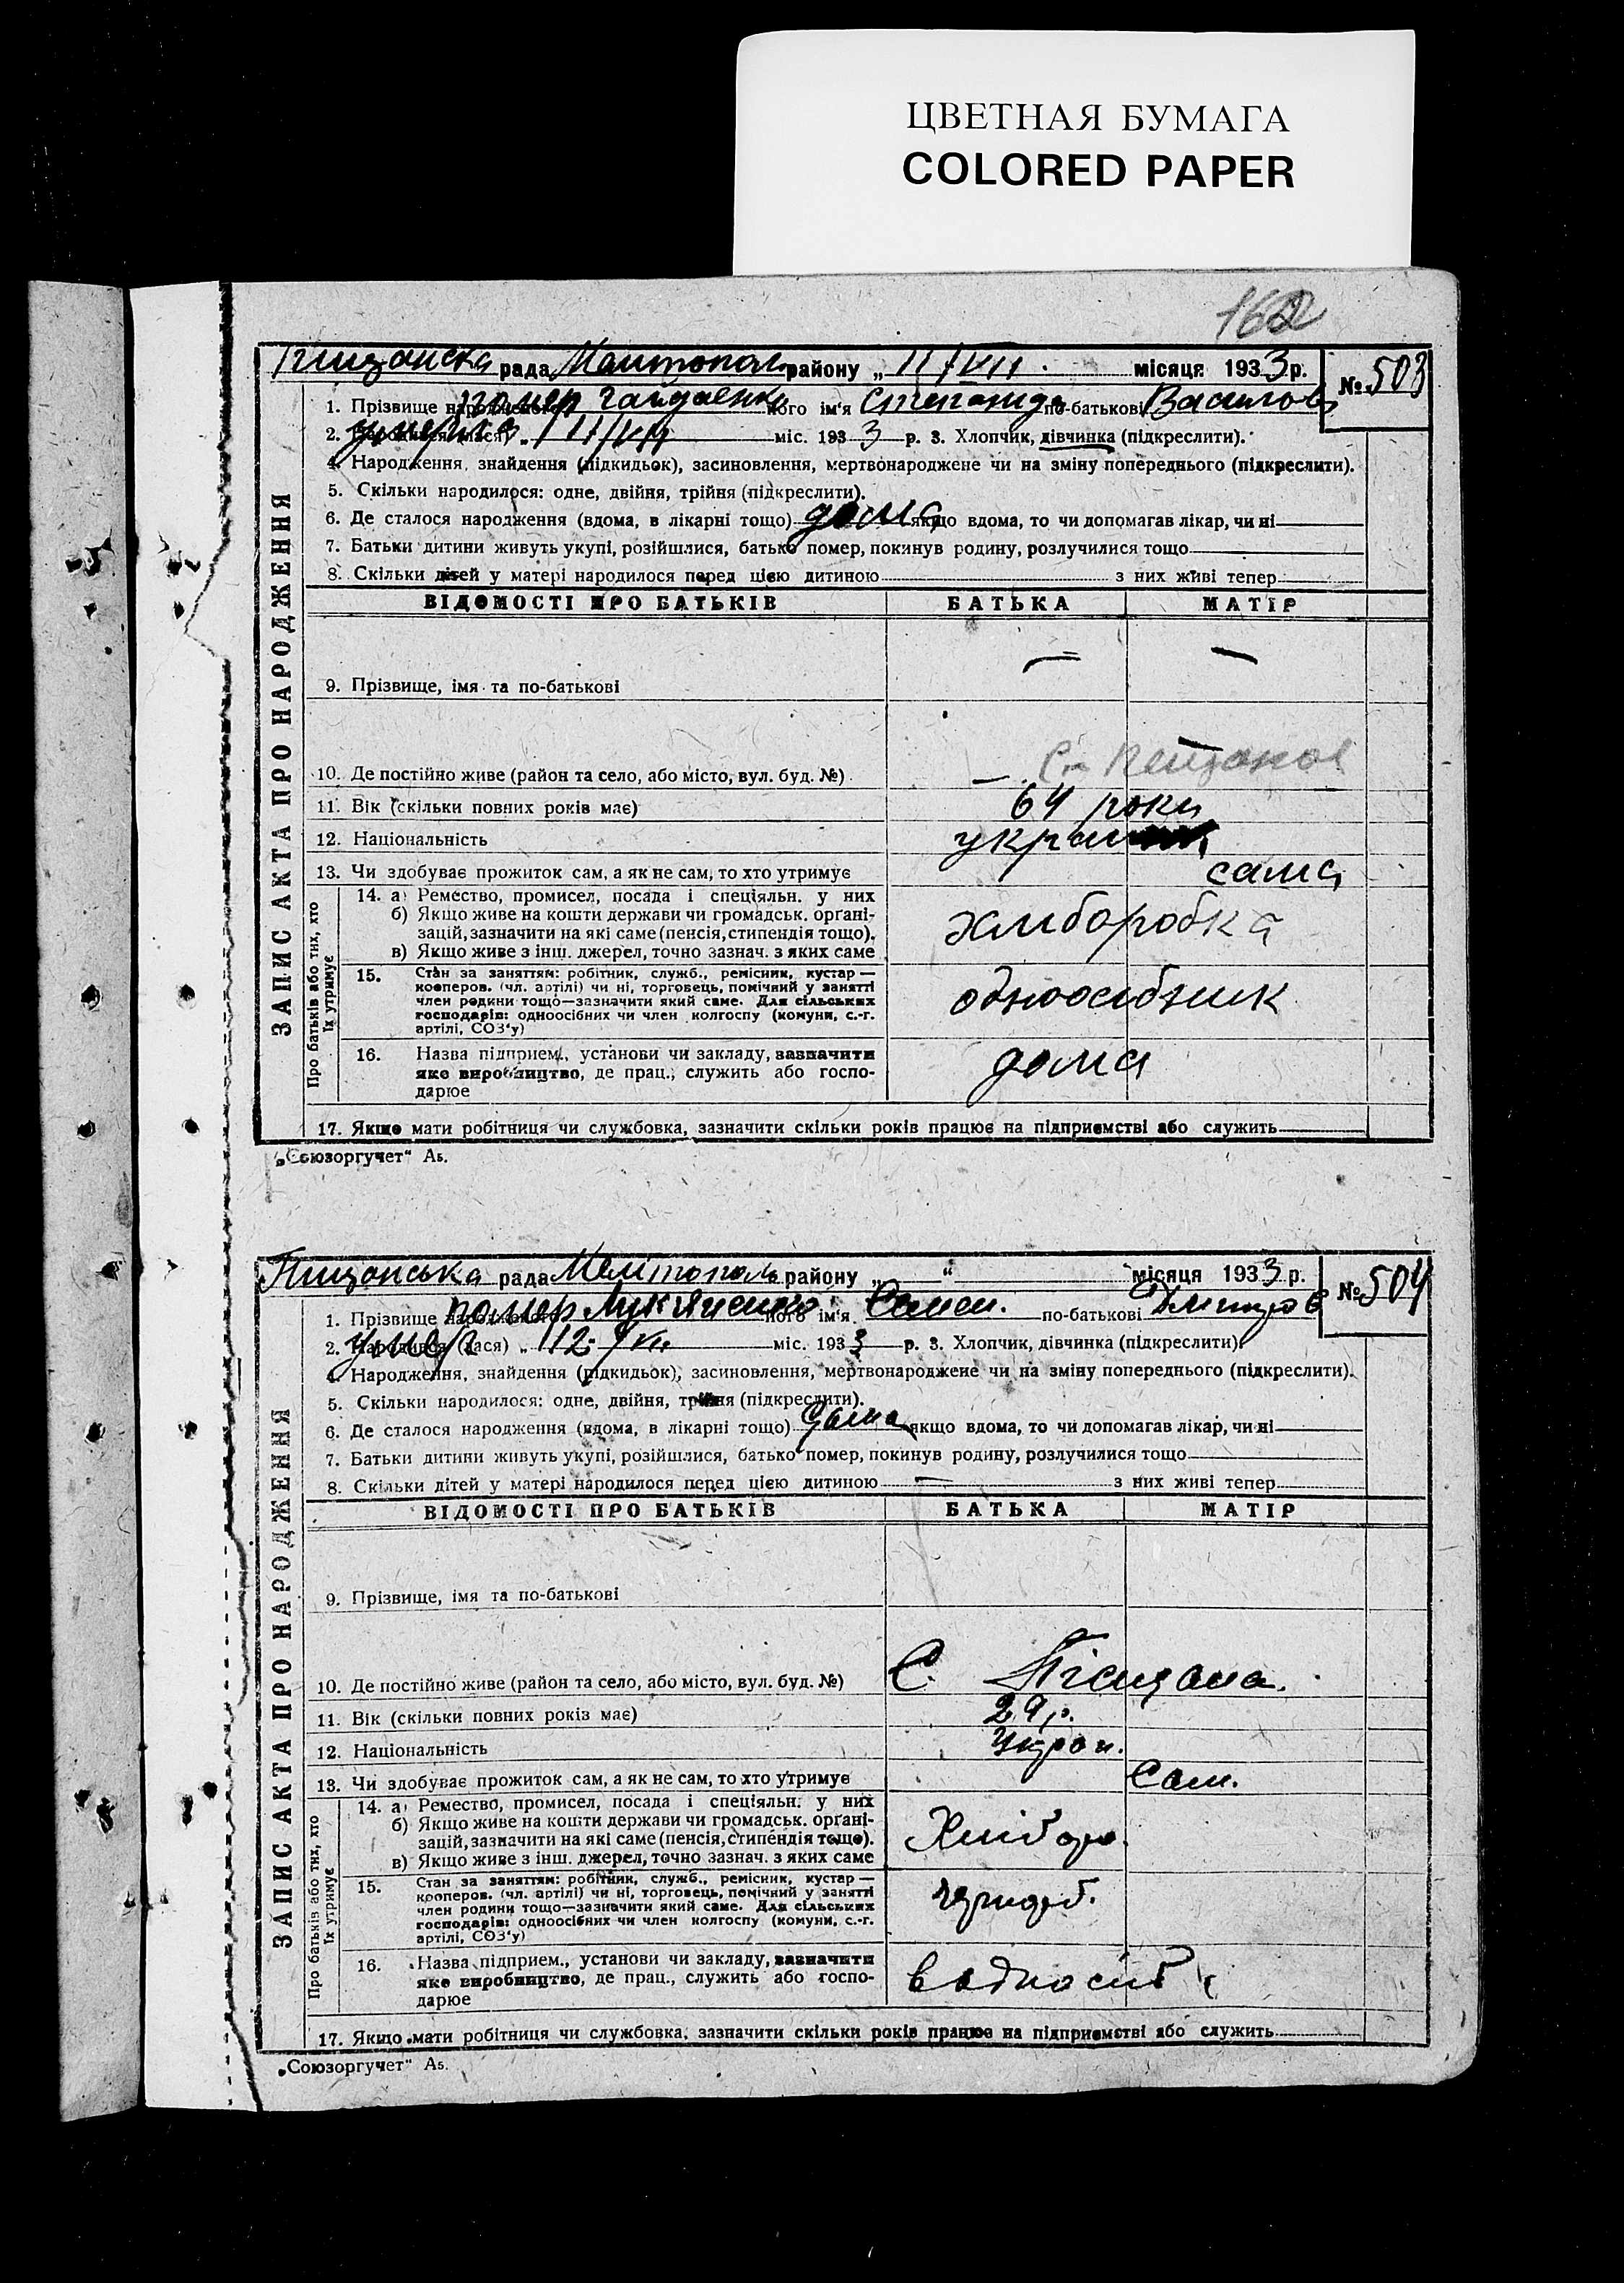 ЦВЕТНАЯ БУМАГА
COLORED PAPER
162
рада Мелітополь району „ 11/VII місяця 1933 р. № 503
1. Прізвище помер Гайдаенко його ім'я Степанида по-батькові Василов
2. умерла „ 11/VII міс. 1933 р. 3. Хлопчик, дівчинка (підкреслити).
4. Народження, знайдення (підкидьок), засиновлення, мертвонароджене чи на зміну попереднього (підкреслити).
5. Скільки народилося: одне, двійня, трійня (підкреслити).
6. Де сталося народження (вдома, в лікарні тощо) дома якщо вдома, то чи допомагав лікар, чи ні
7. Батьки дитини живуть укупі, розійшлися, батько помер, покинув родину, розлучилися тощо
8. Скільки дітей у матері народилося перед цією дитиною з них живі тепер
ЗАПИС АКТА ПРО НАРОДЖЕННЯ
ВІДОМОСТІ ПРО БАТЬКІВ БАТЬКА МАТІР
9. Прізвище, імя та по-батькові — —
10. Де постійно живе (район та село, або місто, вул. буд. №) —
11. Вік (скільки повних років має) 64 роки
12. Національність
13. Чи здобуває прожиток сам, а як не сам, то хто утримує сама
Про батьків або тих, хто їх утримує
14. а) Ремество, промисел, посада і спеціяльн. у них
б) Якщо живе на кошти держави чи громадськ. орґані-
зацій, зазначити на які саме (пенсія, стипендія тощо).
в) Якщо живе з інш. джерел, точно зазнач. з яких саме
хлиборобка
15. Стан за заняттям: робітник, служб., ремісник, кустар —
кооперов. (чл. артілі) чи ні, торговець, помічний у занятті
член родини тощо—зазначити який саме. Для сільських
господарів: одноосібних чи член колгоспу (комуни, с.-г.
артілі, СОЗ'у)
одноосібник
16. Назва підприем., установи чи закладу, зазначити
яке виробництво, де прац., служить або госпо-
дарює
дома
17. Якщо мати робітниця чи службовка, зазначити скільки років працює на підприємстві або служить
„Союзоргучет“ А5.
Пищанська рада Мелітополь району „ “ місяця 1933 р. № 504
1. Прізвище помер Лукяненко його ім'я Семен. по-батькові Дмитров
2. умер „ 12 VII міс. 1933 р. 3. Хлопчик, дівчинка (підкреслити).
4. Народження, знайдення (підкидьок), засиновлення, мертвонароджене чи на зміну попереднього (підкреслити).
5. Скільки народилося: одне, двійня, трійня (підкреслити).
6. Де сталося народження (вдома, в лікарні тощо) дома якщо вдома, то чи допомагав лікар, чи ні
7. Батьки дитини живуть укупі, розійшлися, батько помер, покинув родину, розлучилися тощо
8. Скільки дітей у матері народилося перед цією дитиною — з них живі тепер
ЗАПИС АКТА ПРО НАРОДЖЕННЯ
ВІДОМОСТІ ПРО БАТЬКІВ БАТЬКА МАТІР
9. Прізвище, імя та по-батькові
10. Де постійно живе (район та село, або місто, вул. буд. №) С. Піщана.
11. Вік (скільки повних років має) 29 р.
12. Національність Украи.
13. Чи здобуває прожиток сам, а як не сам, то хто утримує Сам.
Про батьків або тих, хто їх утримує
14. а) Ремество, промисел, посада і спеціяльн. у них
б) Якщо живе на кошти держави чи громадськ. орґані-
зацій, зазначити на які саме (пенсія, стипендія тощо).
в) Якщо живе з інш. джерел, точно зазнач. з яких саме
Хлібор.
15. Стан за заняттям: робітник, служб., ремісник, кустар —
кооперов. (чл. артілі) чи ні, торговець, помічний у занятті
член родини тощо—зазначити який саме. Для сільських
господарів: одноосібних чи член колгоспу (комуни, с.-г.
артілі, СОЗ'у)
16. Назва підприем., установи чи закладу, зазначити
яке виробництво, де прац., служить або госпо-
дарює
17. Якщо мати робітниця чи службовка, зазначити скільки років працює на підприємстві або служить
„Союзоргучет“ А5.